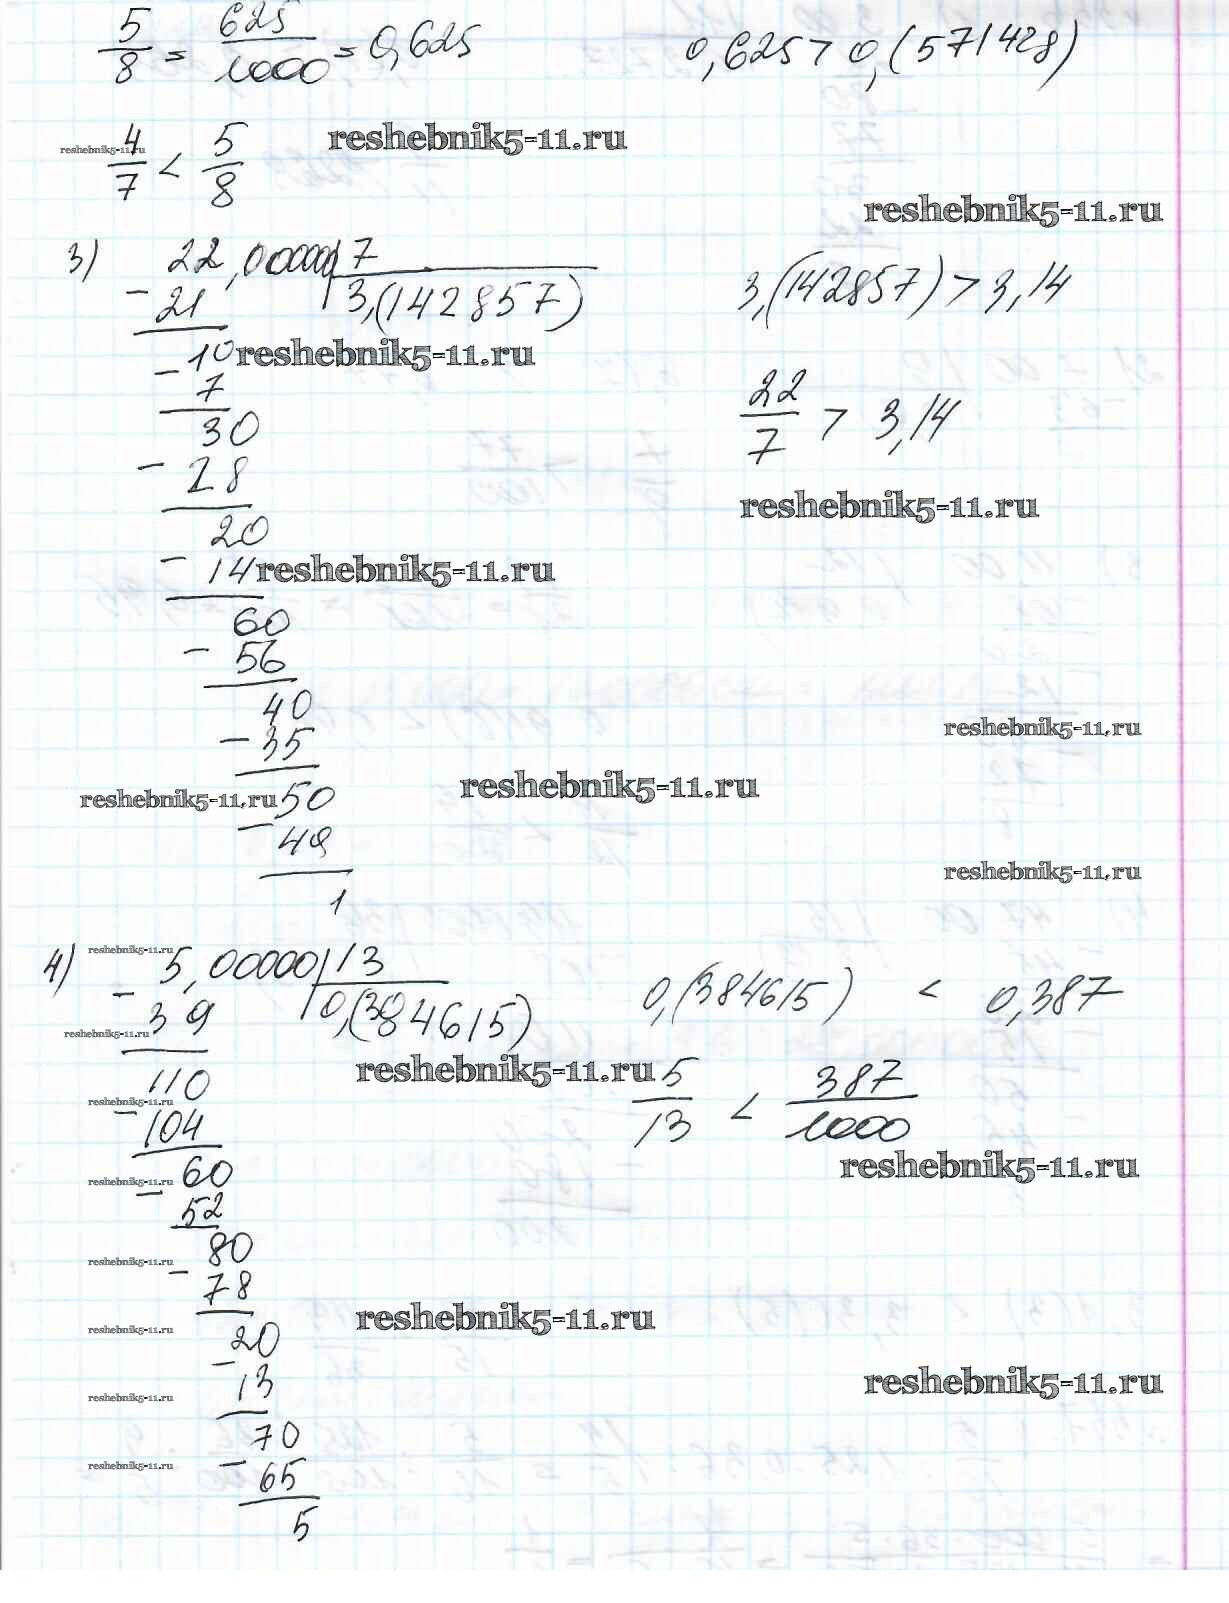 5/8 = 625/1000 = 0,625    0,625 > 0,(571428)
reshebnik5-11.ru
reshebnik5-11.ru
4/7 < 5/8
reshebnik5-11.ru
3) 22,00000 | 7
- 21    3,(142857)    3,(142857) > 3,14
10 reshebnik5-11.ru
- 7    22/7 > 3,14
30
- 28
reshebnik5-11.ru
20
- 14 reshebnik5-11.ru
60
- 56
40
reshebnik5-11.ru
- 35
reshebnik5-11.ru
reshebnik5-11.ru 50
- 49
reshebnik5-11.ru
1
reshebnik5-11.ru
4) 5,00000 | 13
- 39    0,(384615)    0,(384615) < 0,387
reshebnik5-11.ru
110    reshebnik5-11.ru    5/13 < 387/1000
reshebnik5-11.ru
- 104
reshebnik5-11.ru
60
reshebnik5-11.ru
- 52
80
reshebnik5-11.ru
- 78
reshebnik5-11.ru
reshebnik5-11.ru
20
- 13
reshebnik5-11.ru
reshebnik5-11.ru
70
reshebnik5-11.ru
- 65
5